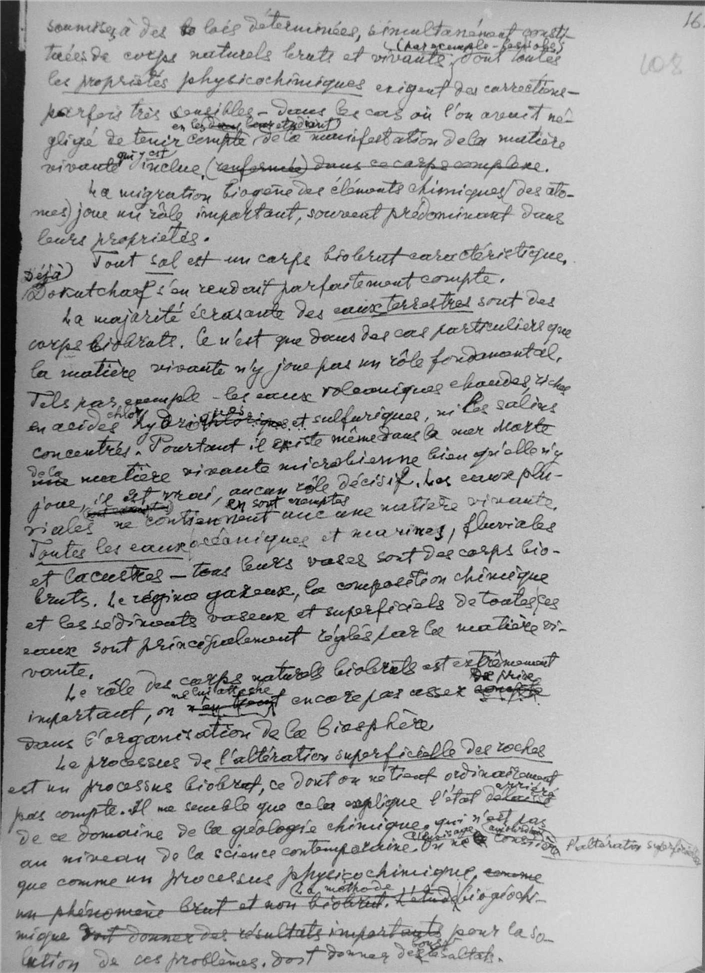 16.
108
soumises à des lois déterminées, simultanément consti-
tuées de corps naturels bruts et vivants (par exemple - les sols) dont toutes
les propriétés physicochimiques exigent des corrections -
parfois très sensibles - dans les cas où l'on aurait né-
gligé de tenir compte, en les étudiant, de la manifestation de la matière
vivante qui y est inclue, (renfermée) dans ce corps complexe.
La migration biogène des éléments chimiques (des ato-
mes) joue un rôle important, souvent prédominant dans
leurs propriétés.
Tout sol est un corps biobrut caractéristique.
Déjà Dokutchaef s'en rendait parfaitement compte.
La majorité écrasante des eaux terrestres sont des
corps biobruts. Ce n'est que dans des cas particuliers que
la matière vivante n'y joue pas un rôle fondamental.
Tels par exemple - les eaux volcaniques chaudes, riches
en acides chlorhydriques et sulfuriques, ni les salins
concentrés. Pourtant il existe même dans la mer Morte
de la matière vivante microbienne bien qu'elle n'y
joue, il est vrai, aucun rôle décisif. Les eaux plu-
viales en sont exemptes ne contiennent aucune matière vivante.
Toutes les eaux océaniques et marines, fluviales
et lacustres - tous leurs vases sont des corps bio-
bruts. Le régime gazeux, la composition chimique
et les sédiments vaseux et superficiels de toutes ces
eaux sont principalement réglés par la matière vi-
vante.
Le rôle des corps naturels biobruts est extrêmement
important, on ne lui attache encore pas assez de prix
dans l'organisation de la biosphère.
Le processus de l'altération superficielle des roches
est un processus biobrut, ce dont on ne tient ordinairement
pas compte. Il me semble que cela explique l'état arriéré
de ce domaine de la géologie chimique, qui n'est pas
au niveau de la science contemporaine. On n'envisage aujourd'hui l'altération superficielle
que comme un processus physicochimique, comme
un phénomène brut et non biobrut. L'étude La méthode biogéochi-
mique doit donner des résultats importants pour la so-
lution de ces problèmes. doit donner des résultats.